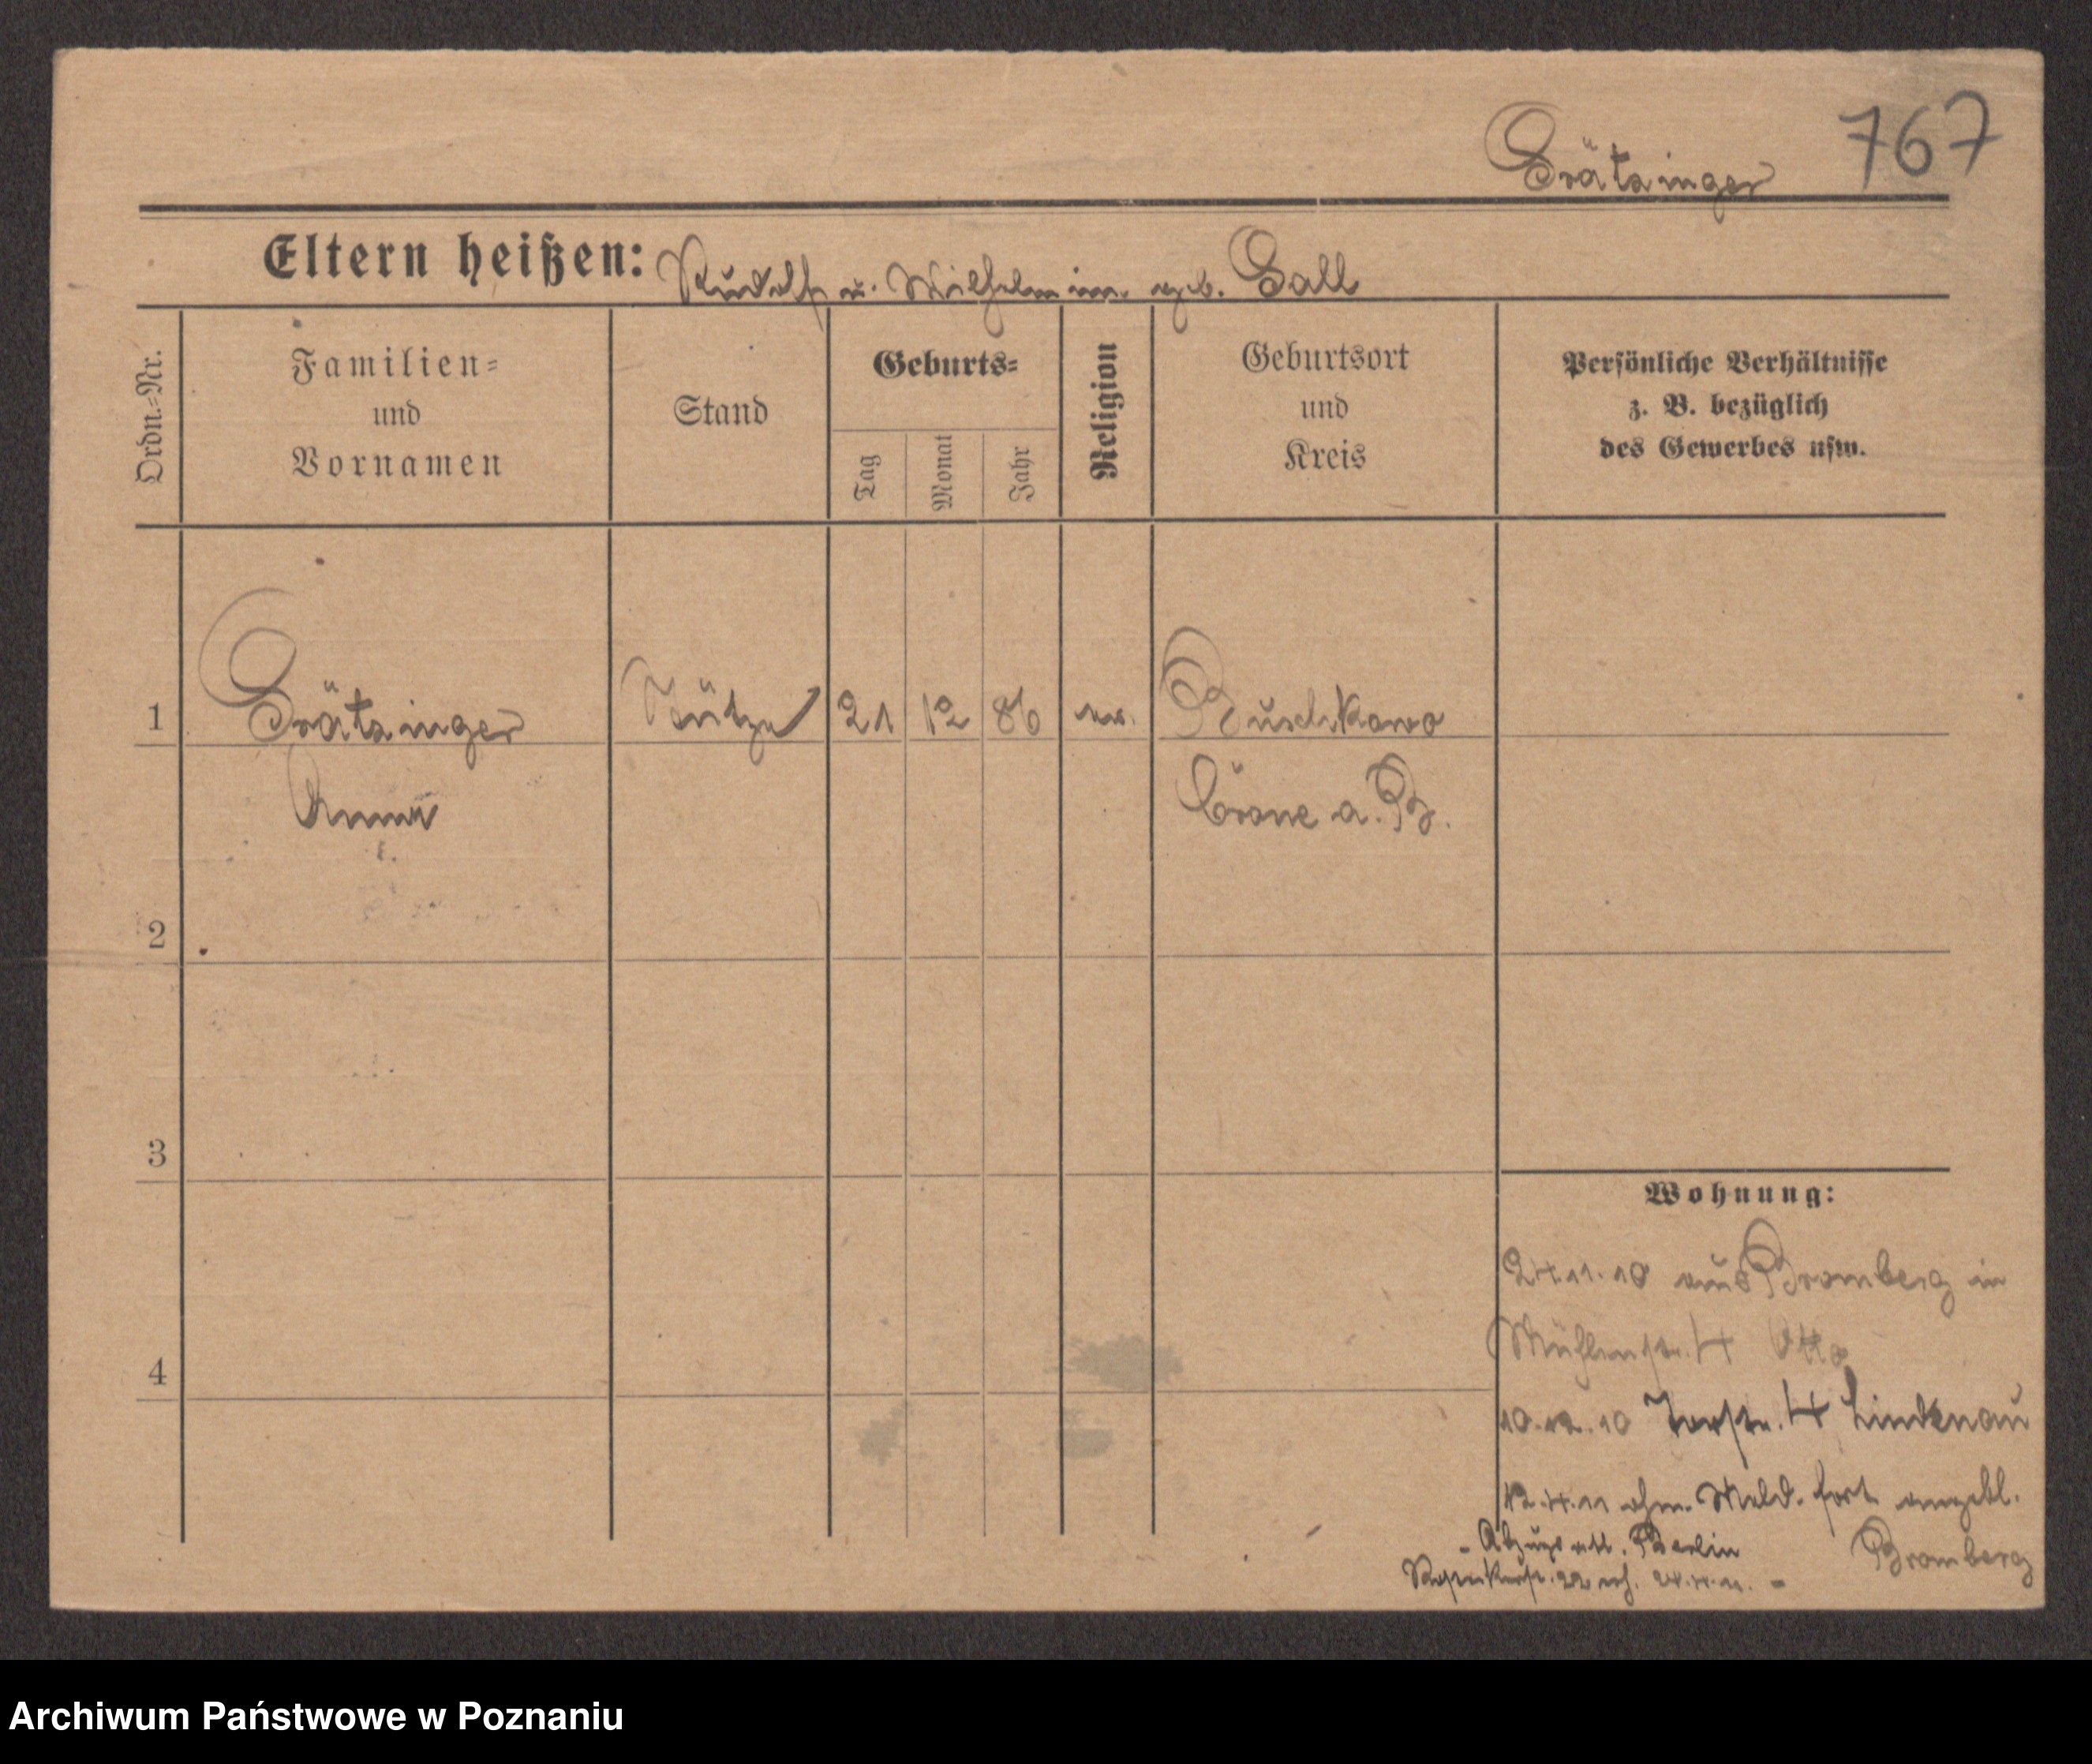 Grätzinger 767
Eltern heißen: Rudolf u. Wilhelmine geb. Gall
Ordn.-Nr.
Familien-
und
Vornamen
Stand
Geburts-
Tag
Monat
Jahr
Religion
Geburtsort
und
Kreis
Persönliche Verhältnisse
z. B. bezüglich
des Gewerbes usw.
1 Grätzinger Stütze 21 12 86 ev. Buschkowo
Anna Crone a. B.
2
3
4
Wohnung:
24.11.10 aus Bromberg in
Mühlenstr. 4 Otto
10.12.10 Torstr. 4 Lindenau
12.4.11 ohne Meld. fort angebl.
Bromberg
- Abzugs Berlin
22
Archiwum Państwowe w Poznaniu